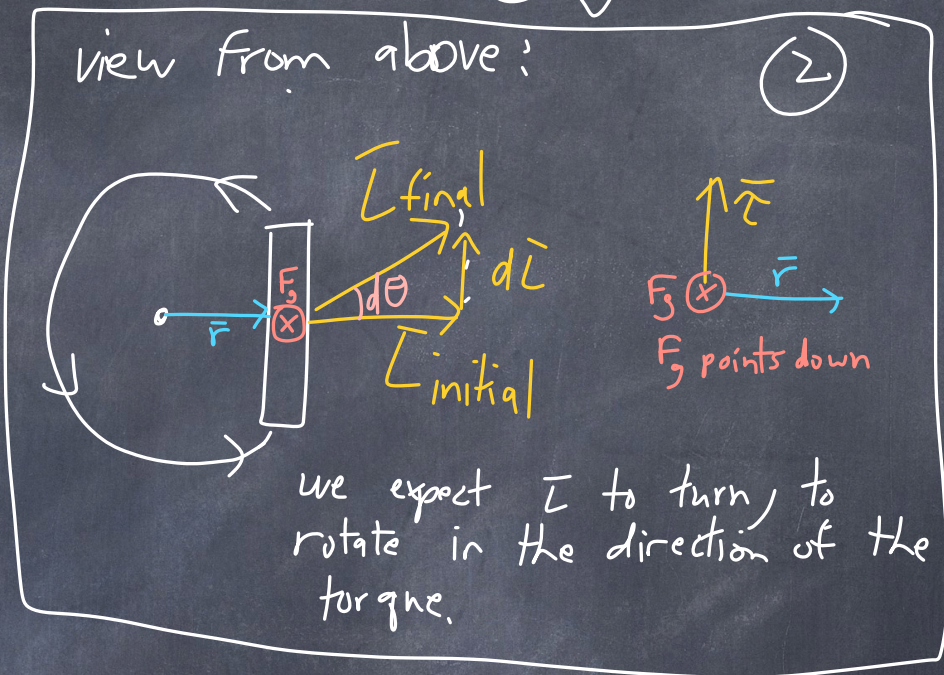 view from above:
2
L̄ final
τ̄
F_g
dθ
dL̄
r̄
F_g
r̄
L̄ initial
F_g points down
we expect L̄ to turn, to
rotate in the direction of the
torque.